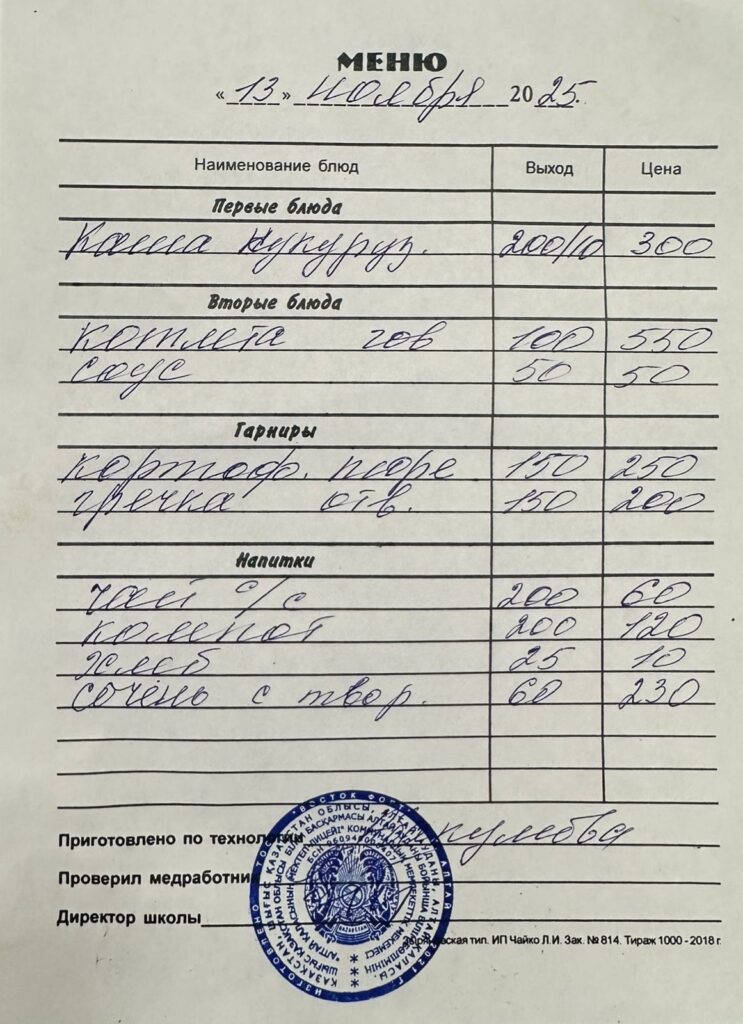 МЕНЮ
« 13 » ноября 20 25.
Наименование блюд Выход Цена
Первые блюда
Каша кукуруз. 200/10 300
Вторые блюда
котлета гов 100 550
соус 50 50
Гарниры
картоф. пюре 150 250
гречка отв. 150 200
Напитки
чай с/с 200 60
компот 200 120
хлеб 25 10
сочень с твор. 60 230
Приготовлено по технологии
Проверил медработник
Директор школы
тип. ИП Чайко Л.И. Зак. № 814. Тираж 1000 - 2018 г.